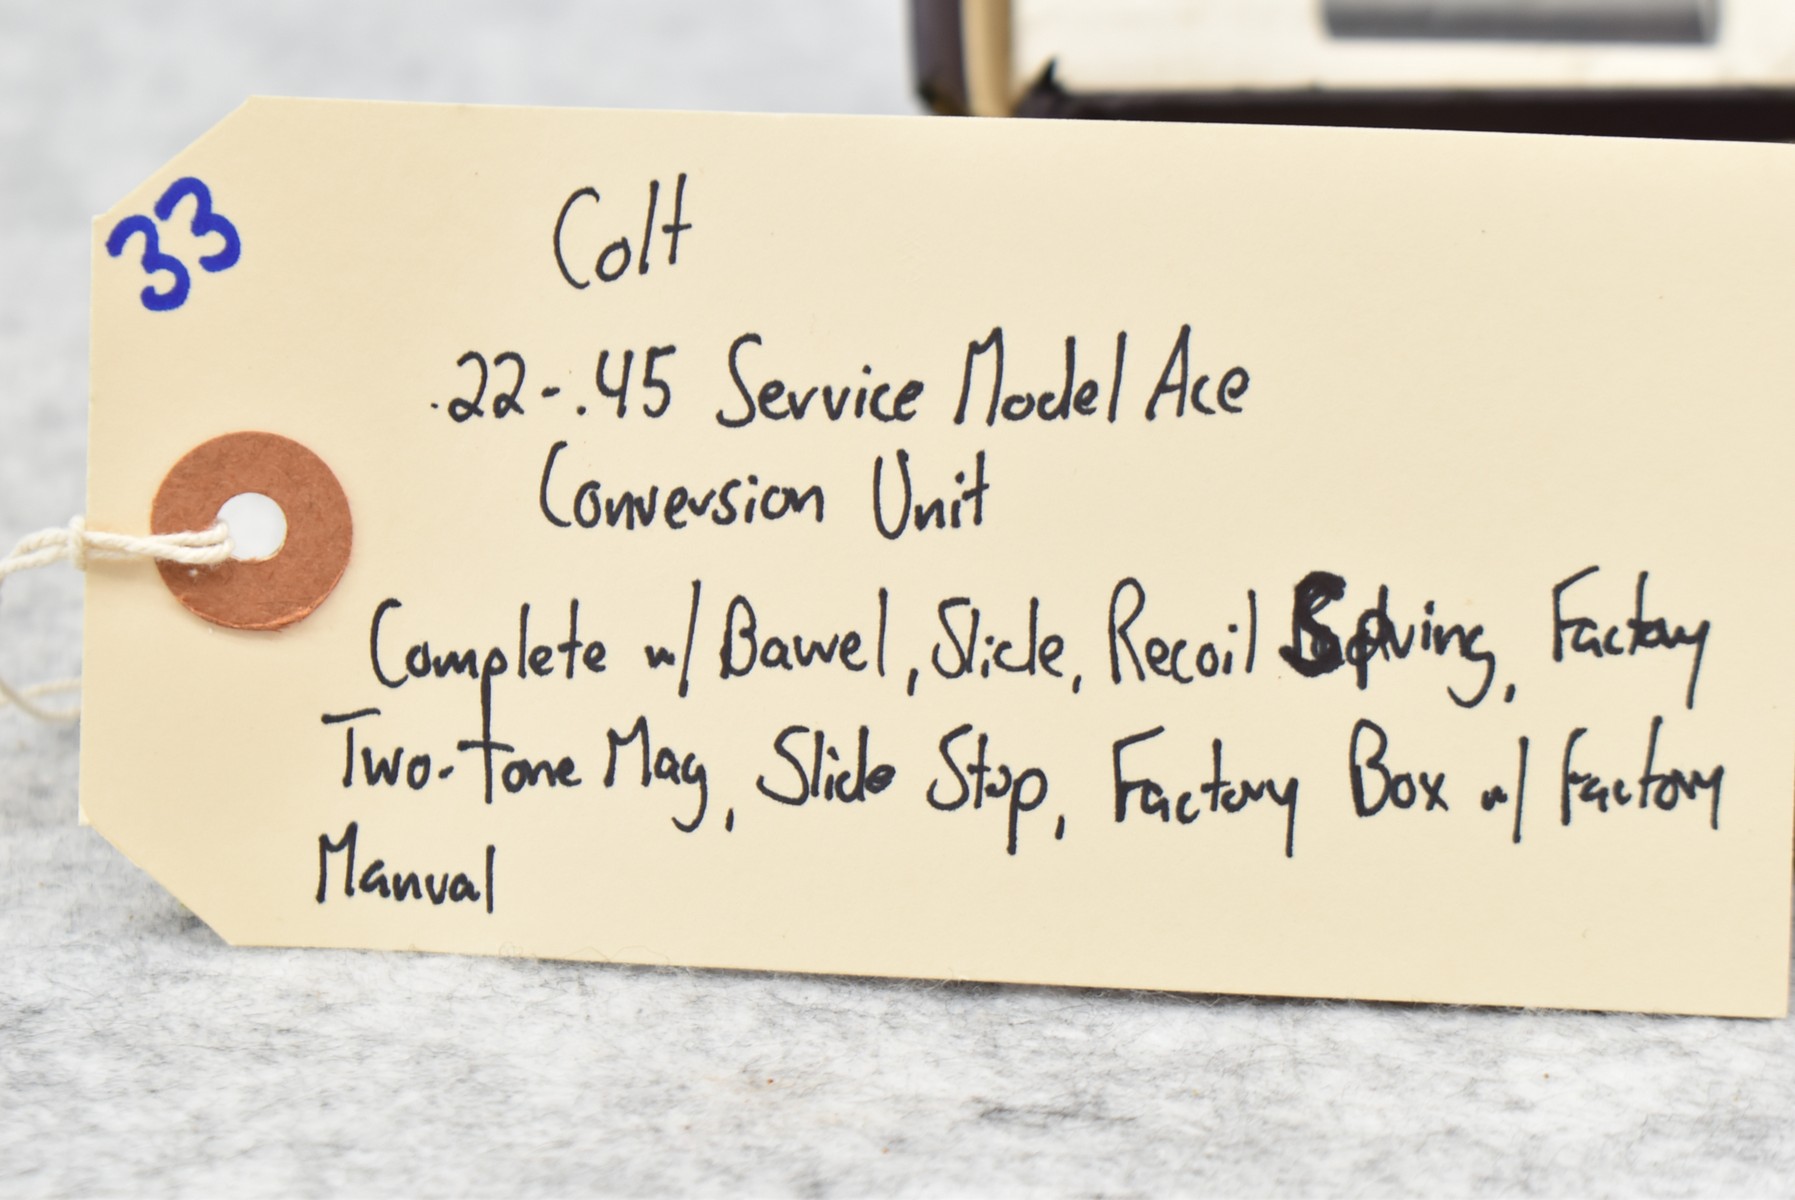 33
Colt
.22-.45 Service Model Ace
Conversion Unit
Complete w/ Barrel, Slide, Recoil Spring, Factory
Two-Tone Mag, Slide Stop, Factory Box w/ Factory
Manual